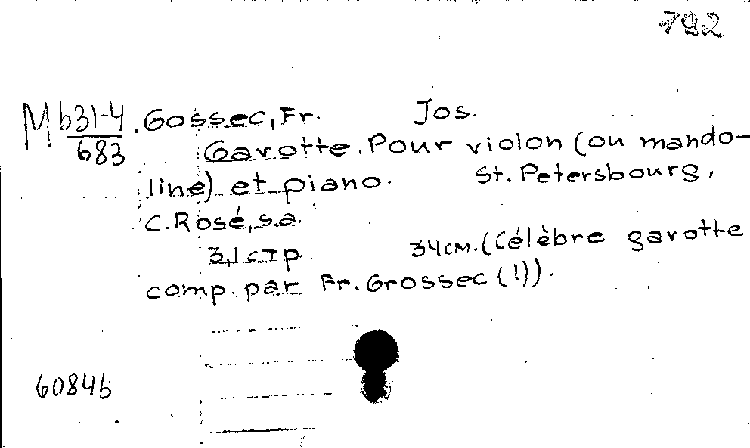 792
Mb31-4
683
Gossec, Fr. Jos.
Gavotte. Pour violon (ou mando-
line) et piano. St. Petersbourg,
C. Rosé, s.a.
3,1 стр 34см. (Célèbre gavotte
comp. par Fr. Grossec (!)).
6084b